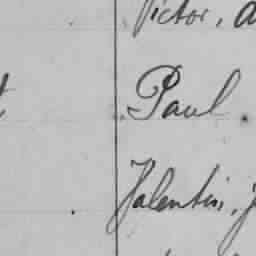 Victor,
Paul.
Valentin,